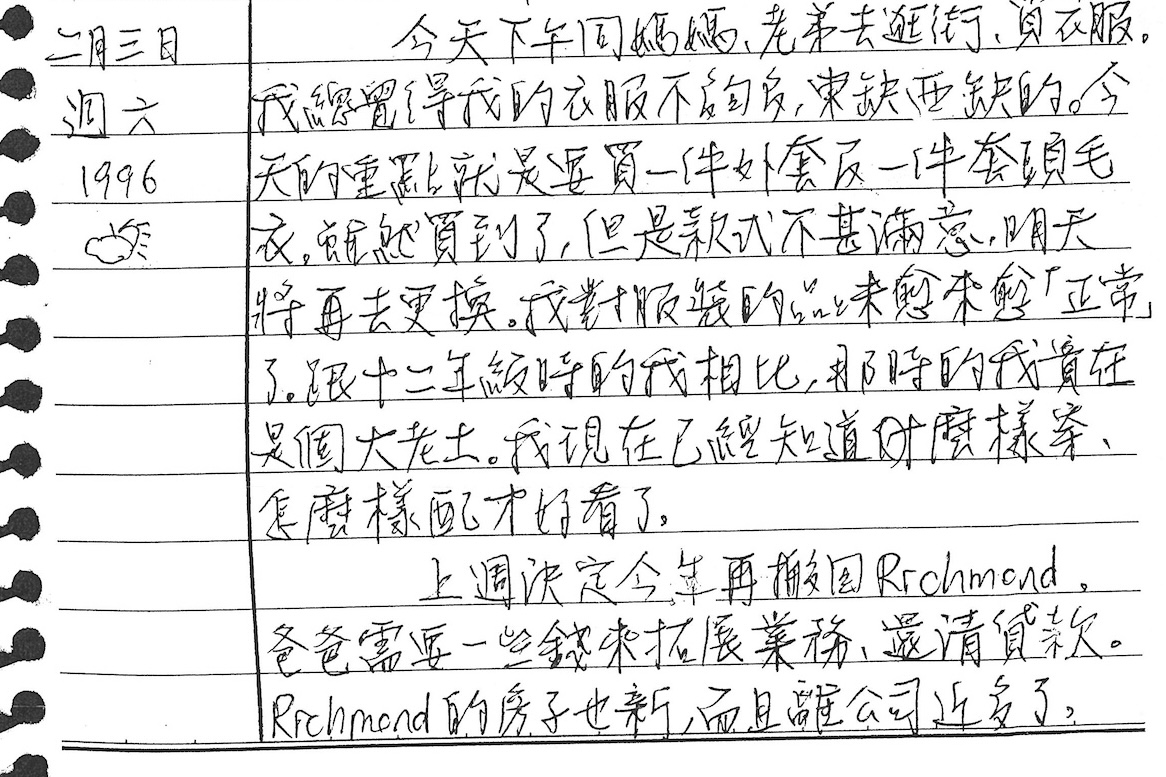 二月三日
週六
1996
今天下午同媽媽、老弟去逛街、買衣服。
我總覺得我的衣服不夠多,東缺西缺的。今
天的重點就是要買一件外套及一件套頭毛
衣。雖然買到了,但是款式不甚滿意,明天
將再去更換。我對服裝的品味愈來愈「正常」
了。跟十二年級時的我相比,那時的我實在
是個大老土。我現在已經知道什麼樣穿、
怎麼樣配才好看了。
上週決定今年再搬回Richmond。
爸爸需要一些錢來拓展業務、還清貸款。
Richmond的房子也新,而且離公司近多了。